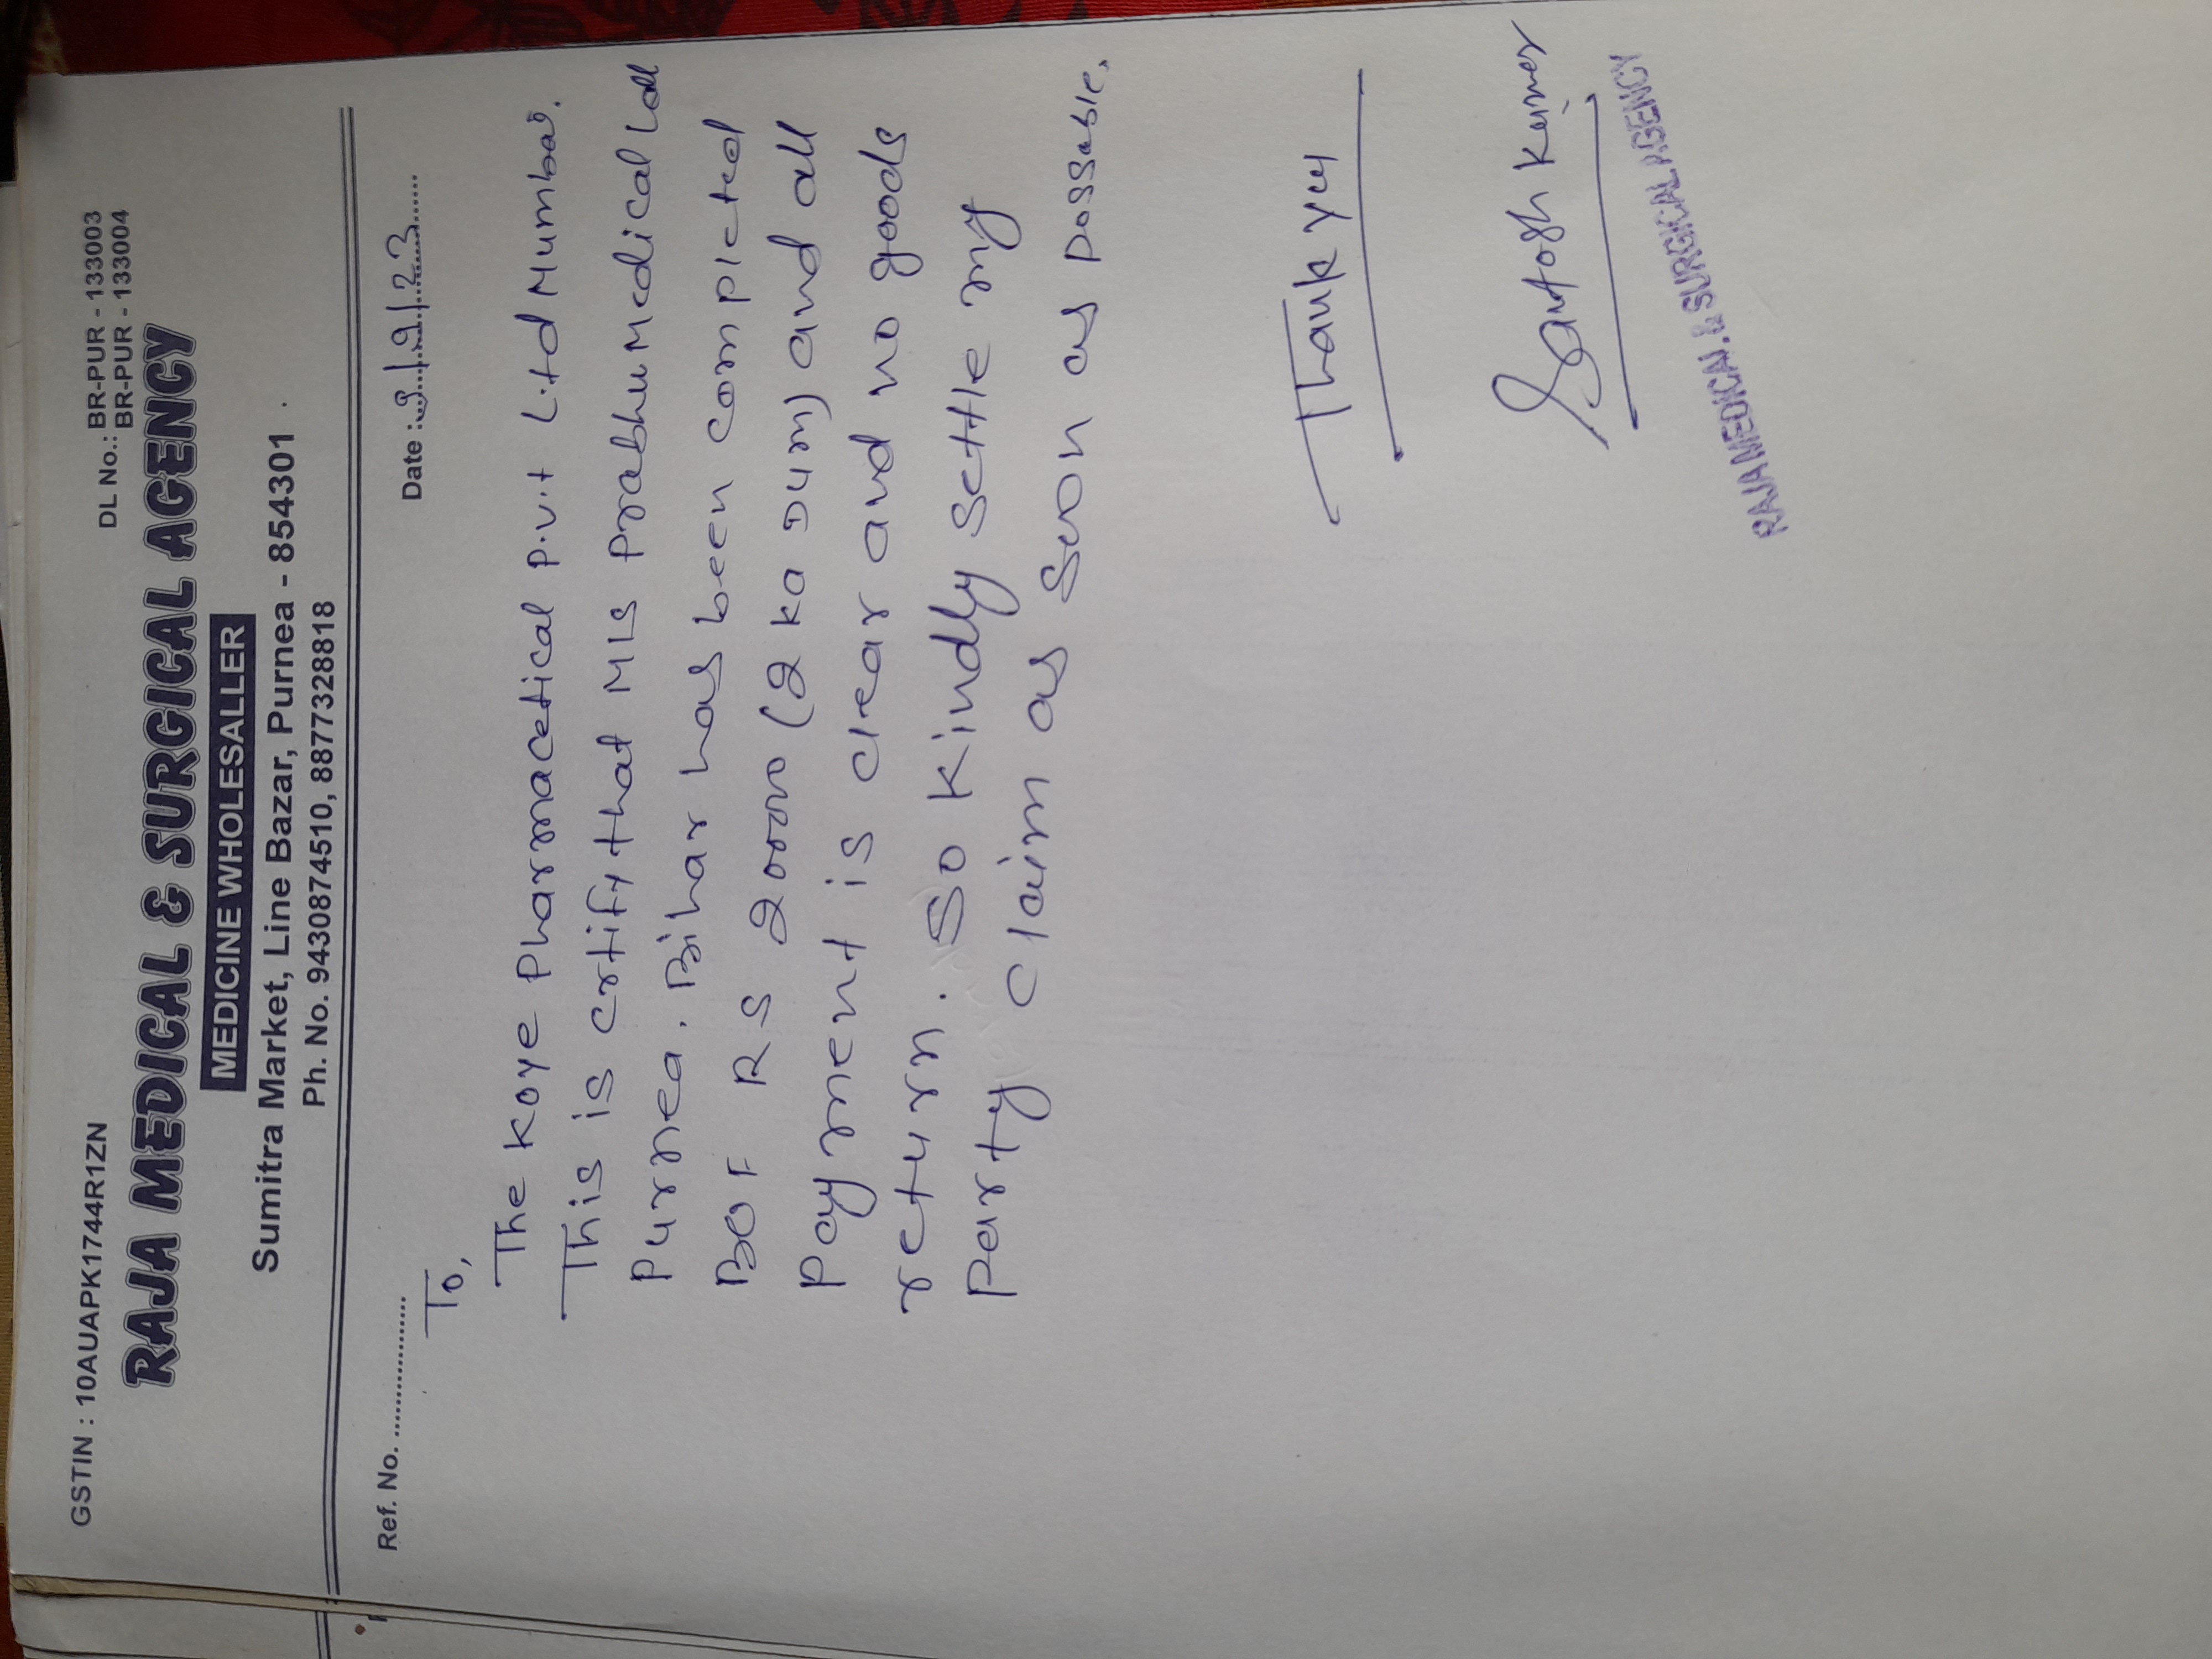 GSTIN : 10AUAPK1744R1ZN
DL No.: BR-PUR - 133003
BR-PUR - 133004
RAJA MEDICAL & SURGICAL AGENCY
MEDICINE WHOLESALLER
Sumitra Market, Line Bazar, Purnea - 854301
Ph. No. 9430874510, 8877328818
Ref. No. ....................
Date : 9/9/23
To,
The Koye Pharmacetical P.v.t L.td Mumbai.
This is crtify that M/s Prabhu Medical Lall
Purnea. Bihar has been complcted
BOF RS 20000 (2 ka Dum) and all
Payment is clear and no goods
return. So Kindly settle my
Party claim as soon as possable.
Thank you
Santosh Kumar
RAJA MEDICAL & SURGICAL AGENCY